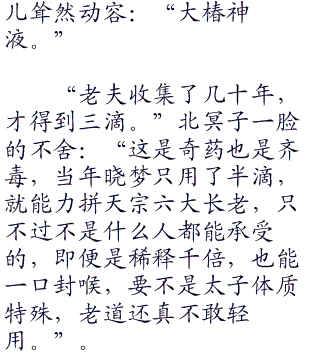 儿耸然动容：“大椿神
液。”
“老夫收集了几十年，
才得到三滴。”北冥子一脸
的不舍：“这是奇药也是齐
毒，当年晓梦只用了半滴，
就能力拼天宗六大长老，只
不过不是什么人都能承受
的，即便是稀释千倍，也能
一口封喉，要不是太子体质
特殊，老道还真不敢轻
用。”。